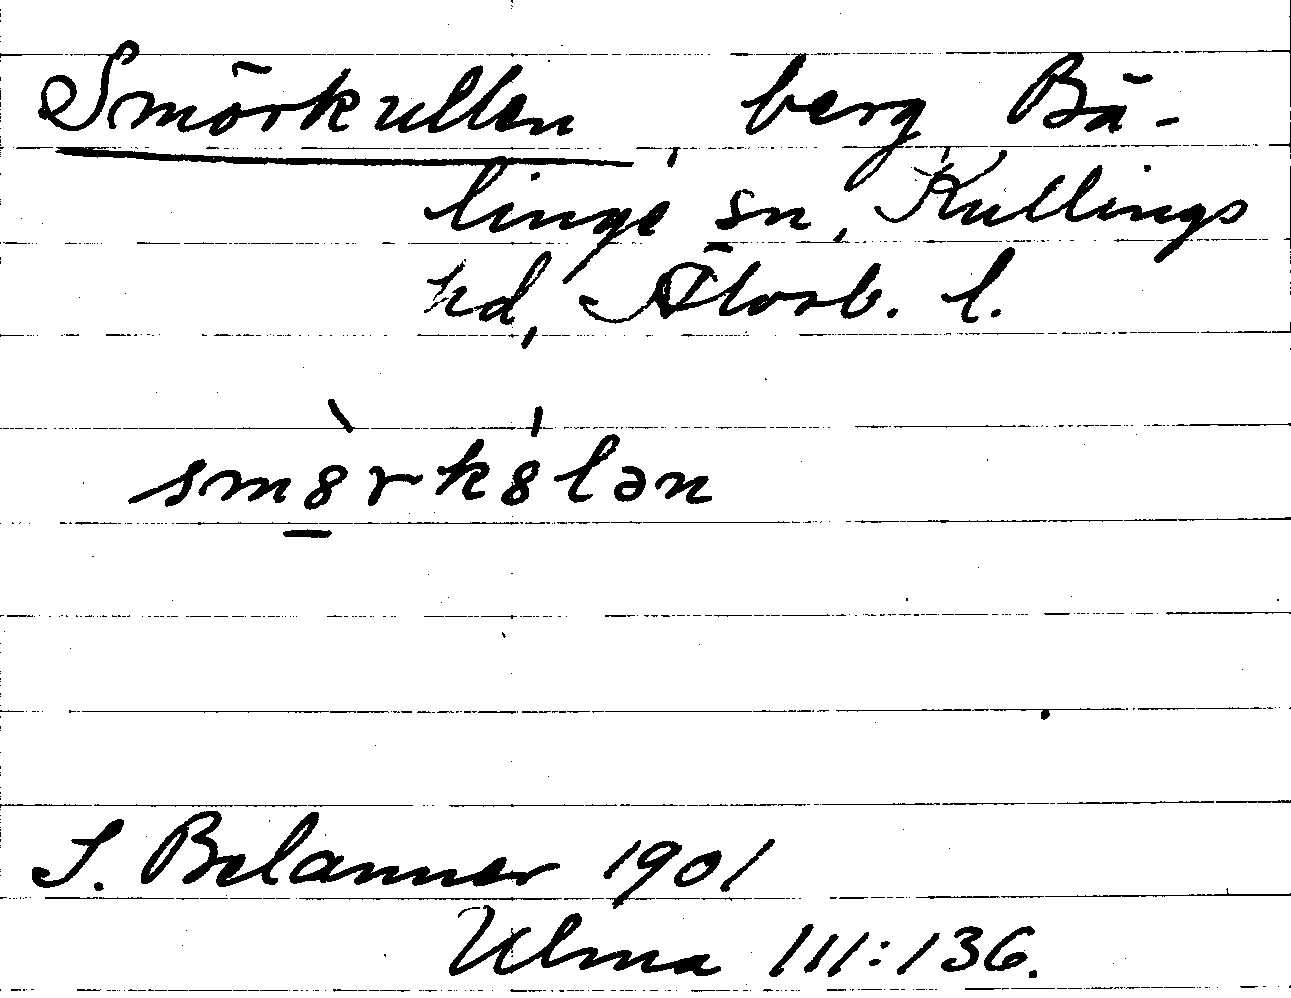 Smörkullen, berg Bä-
linge sn, Kullings
hd, Älvsb. l.
sm8̲̀rk8́lən
S. Belanner 1901
Ulma 111:136.